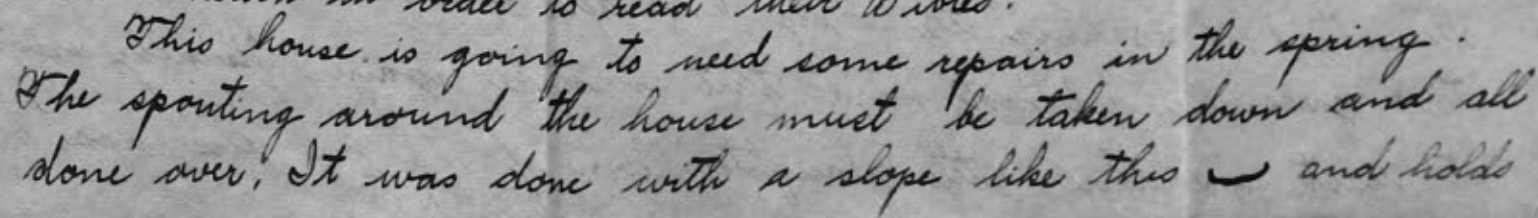 in order to read their Bibles.
This house is going to need some repairs in the spring.
The spouting around the house must be taken down and all
done over. It was done with a slope like this and holds